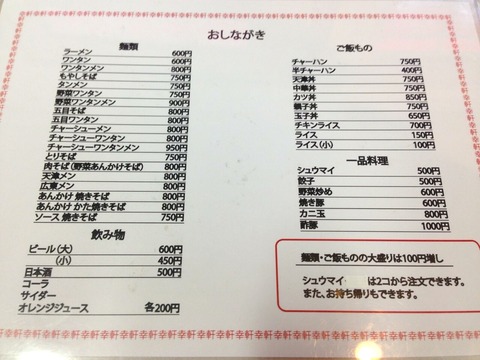 おしながき
麺類
ラーメン 600円
ワンタン 600円
ワンタンメン 800円
もやしそば 750円
タンメン 750円
野菜ワンタン 750円
野菜ワンタンメン 900円
五目そば 800円
五目ワンタン 800円
チャーシューメン 800円
チャーシューワンタン 800円
チャーシューワンタンメン 950円
とりそば 750円
肉そば(野菜あんかけそば) 800円
天津メン 800円
広東メン 800円
あんかけ 焼きそば 800円
あんかけ かた焼きそば 800円
ソース 焼きそば 750円
飲み物
ビール(大) 600円
(小) 450円
日本酒 500円
コーラ
サイダー
オレンジジュース 各200円
ご飯もの
チャーハン 750円
半チャーハン 400円
天津丼 750円
中華丼 750円
カツ丼 850円
親子丼 750円
玉子丼 650円
チキンライス 700円
ライス 150円
ライス(小) 100円
一品料理
シュウマイ 500円
餃子 500円
野菜炒め 600円
焼き豚 600円
カニ玉 800円
酢豚 1000円
麺類・ご飯ものの大盛りは100円増し
シュウマイ は2コから注文できます。
また、お持ち帰りもできます。